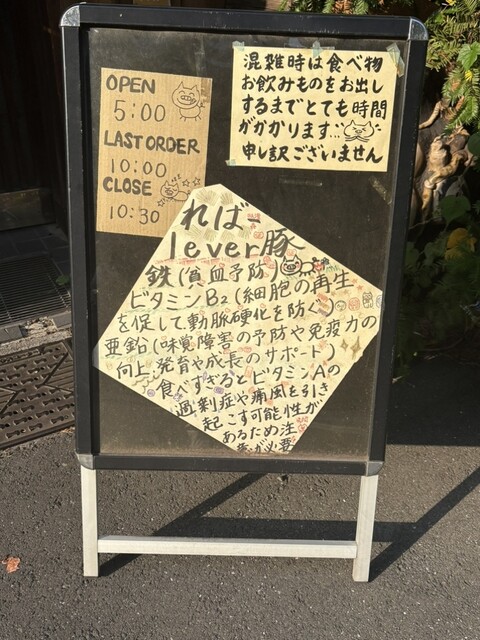 OPEN
5:00
LAST ORDER
10:00
CLOSE
10:30
混雑時は食べ物
お飲みものをお出し
するまでとても時間
がかがります…
申し訳ございません
ればー
lever豚
鉄(貧血予防)
ビタミンB2(細胞の再生
を促して動脈硬化を防ぐ)
亜鉛(味覚障害の予防や免疫力の
向上、発育や成長のサポート)
食べすぎるとビタミンAの
過剰症や痛風を引き
起こす可能性が
あるため注
意が必要